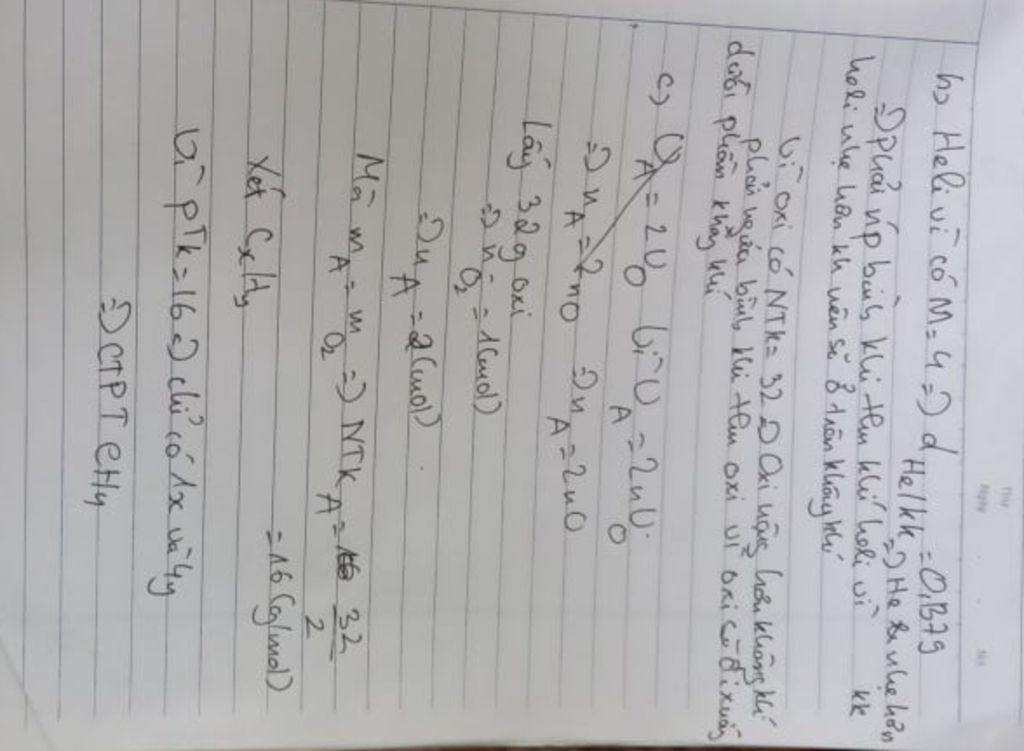 Thứ
Ngày No
b) Heli vì có M = 4 => d He/kk = 0,1379
=> He nhẹ hơn kk
=> phải úp bình khi thu khí heli vì
heli nhẹ hơn kk nên sẽ ở trên không khí
Vì oxi có NTK = 32 => Oxi nặng hơn không khí
phải ngửa bình khi thu oxi vì oxi sẽ đi xuống
dưới phần không khí
c) V A = 2V O Vì V A = 2 V O
=> n A = 2 n O => n A = 2 n O
Lấy 32g oxi
=> n O2 = 1 (mol)
=> n A = 2 (mol)
Mà m A = m O2 => NTK A = 32/2
= 16 (g/mol)
Xét CxHy
Vì PTK = 16 => chỉ có 1x và 4y
=> CTPT CH4